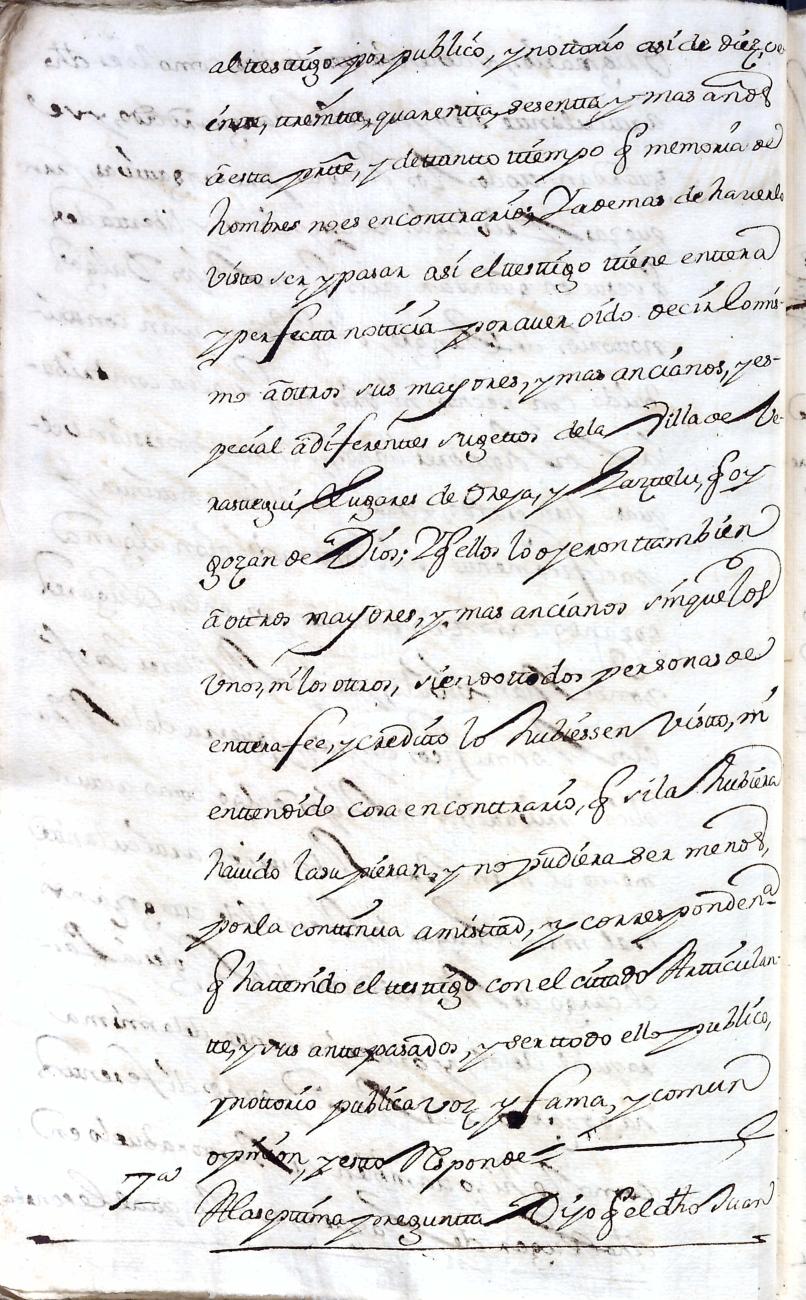 al testigo por publico, y nottorio asi de diez, ve
inte, treinta, quarenta, sesenta y mas años
a esta prte, y de tanto tiempo q memoria de
hombres no es encontrario; Y ademas de haverlo
visto ser y pasar asi el testigo tiene entera
y perfecta noticia por aver oido decir lo mis-
mo a otros sus mayores, y mas ancianos, y es-
pecial a diferentes sugettos de la Villa de Ve-
rastegui, Lugares de Oreja, y Gaztelu, q oy
gozan de Dios; Y q ellos lo oyeron tambien
a otros mayores, y mas ancianos sin que los
unos, ni los otros, siendo todos personas de
entera fee, y credito lo hubiessen visto, ni
entendido cosa encontrario, q si la hubiera
havido la supieran, y no pudiera ser menos,
por la continua amistad, y correspondena
q ha tenido el testigo con el citado Articulan-
te, y sus antepasados, y ser todo ello publico,
y nottorio publica voz, y fama, y comun
opinion, y esto Responde
7a A la septima pregunta Dijo q el dho Juan